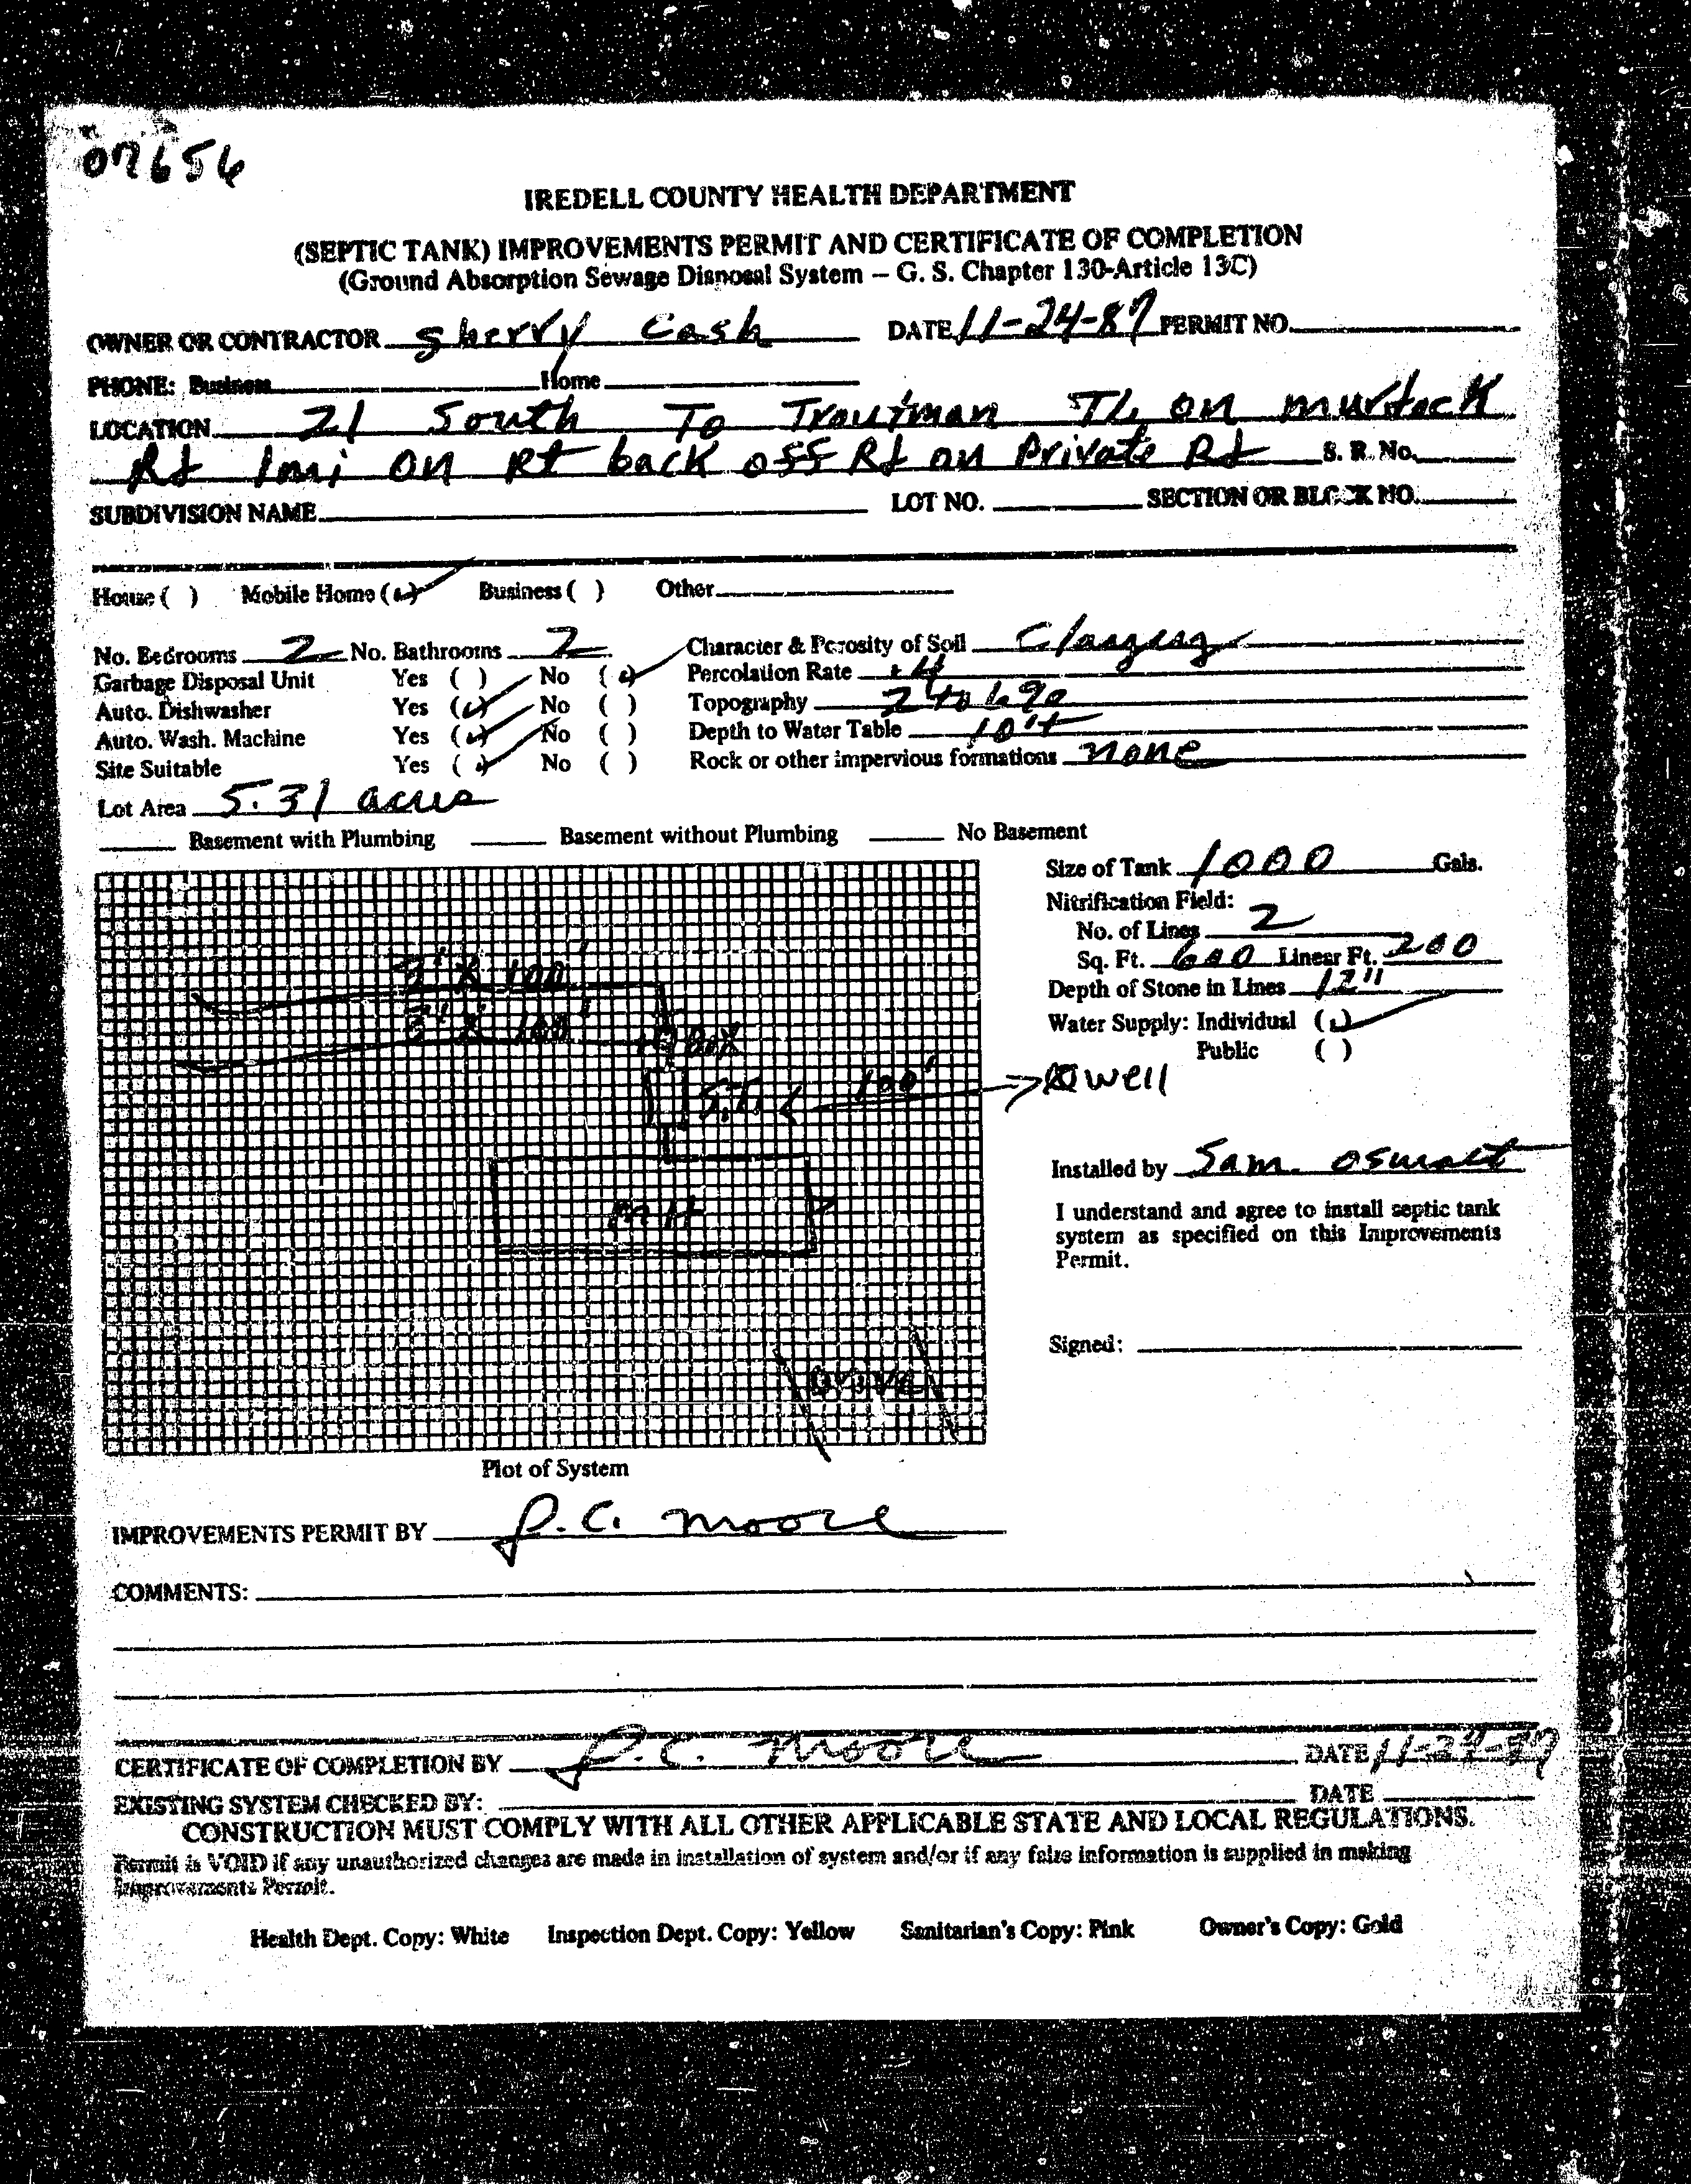 07656
IREDELL COUNTY HEALTH DEPARTMENT
(SEPTIC TANK) IMPROVEMENTS PERMIT AND CERTIFICATE OF COMPLETION
(Ground Absorption Sewage Disposal System – G. S. Chapter 130-Article 13C)
OWNER OR CONTRACTOR Sherry Cash DATE 11-24-87 PERMIT NO.
PHONE: Business Home
LOCATION 21 South To Troutman TL on murdock
Rd 1mi on Rt back off Rd on Private Rd S. R. No.
SUBDIVISION NAME LOT NO. SECTION OR BLOCK NO.
House ( ) Mobile Home (✓) Business ( ) Other
No. Bedrooms 2 No. Bathrooms 2 Character & Porosity of Soil
Garbage Disposal Unit Yes ( ) No (✓) Percolation Rate
Auto. Dishwasher Yes (✓) No ( ) Topography 2 to 6%
Auto. Wash. Machine Yes (✓) No ( ) Depth to Water Table 10'+
Site Suitable Yes (✓) No ( ) Rock or other impervious formations none
Lot Area 5.31 acres
Basement with Plumbing Basement without Plumbing No Basement
Size of Tank 1000 Gals.
Nitrification Field:
No. of Lines 2
Sq. Ft. 600 Linear Ft. 200
Depth of Stone in Lines 12"
Water Supply: Individual (✓)
Public ( )
3' X 100'
3' X 100'
Box
S.T. 100' well
MH
Drive
Installed by Sam Oswalt
I understand and agree to install septic tank
system as specified on this Improvements
Permit.
Signed:
Plot of System
IMPROVEMENTS PERMIT BY J.C. Moore
COMMENTS:
CERTIFICATE OF COMPLETION BY J.C. Moore DATE 11-24-87
EXISTING SYSTEM CHECKED BY: DATE
CONSTRUCTION MUST COMPLY WITH ALL OTHER APPLICABLE STATE AND LOCAL REGULATIONS.
Permit is VOID if any unauthorized changes are made in installation of system and/or if any false information is supplied in making
Improvements Permit.
Health Dept. Copy: White Inspection Dept. Copy: Yellow Sanitarian's Copy: Pink Owner's Copy: Gold